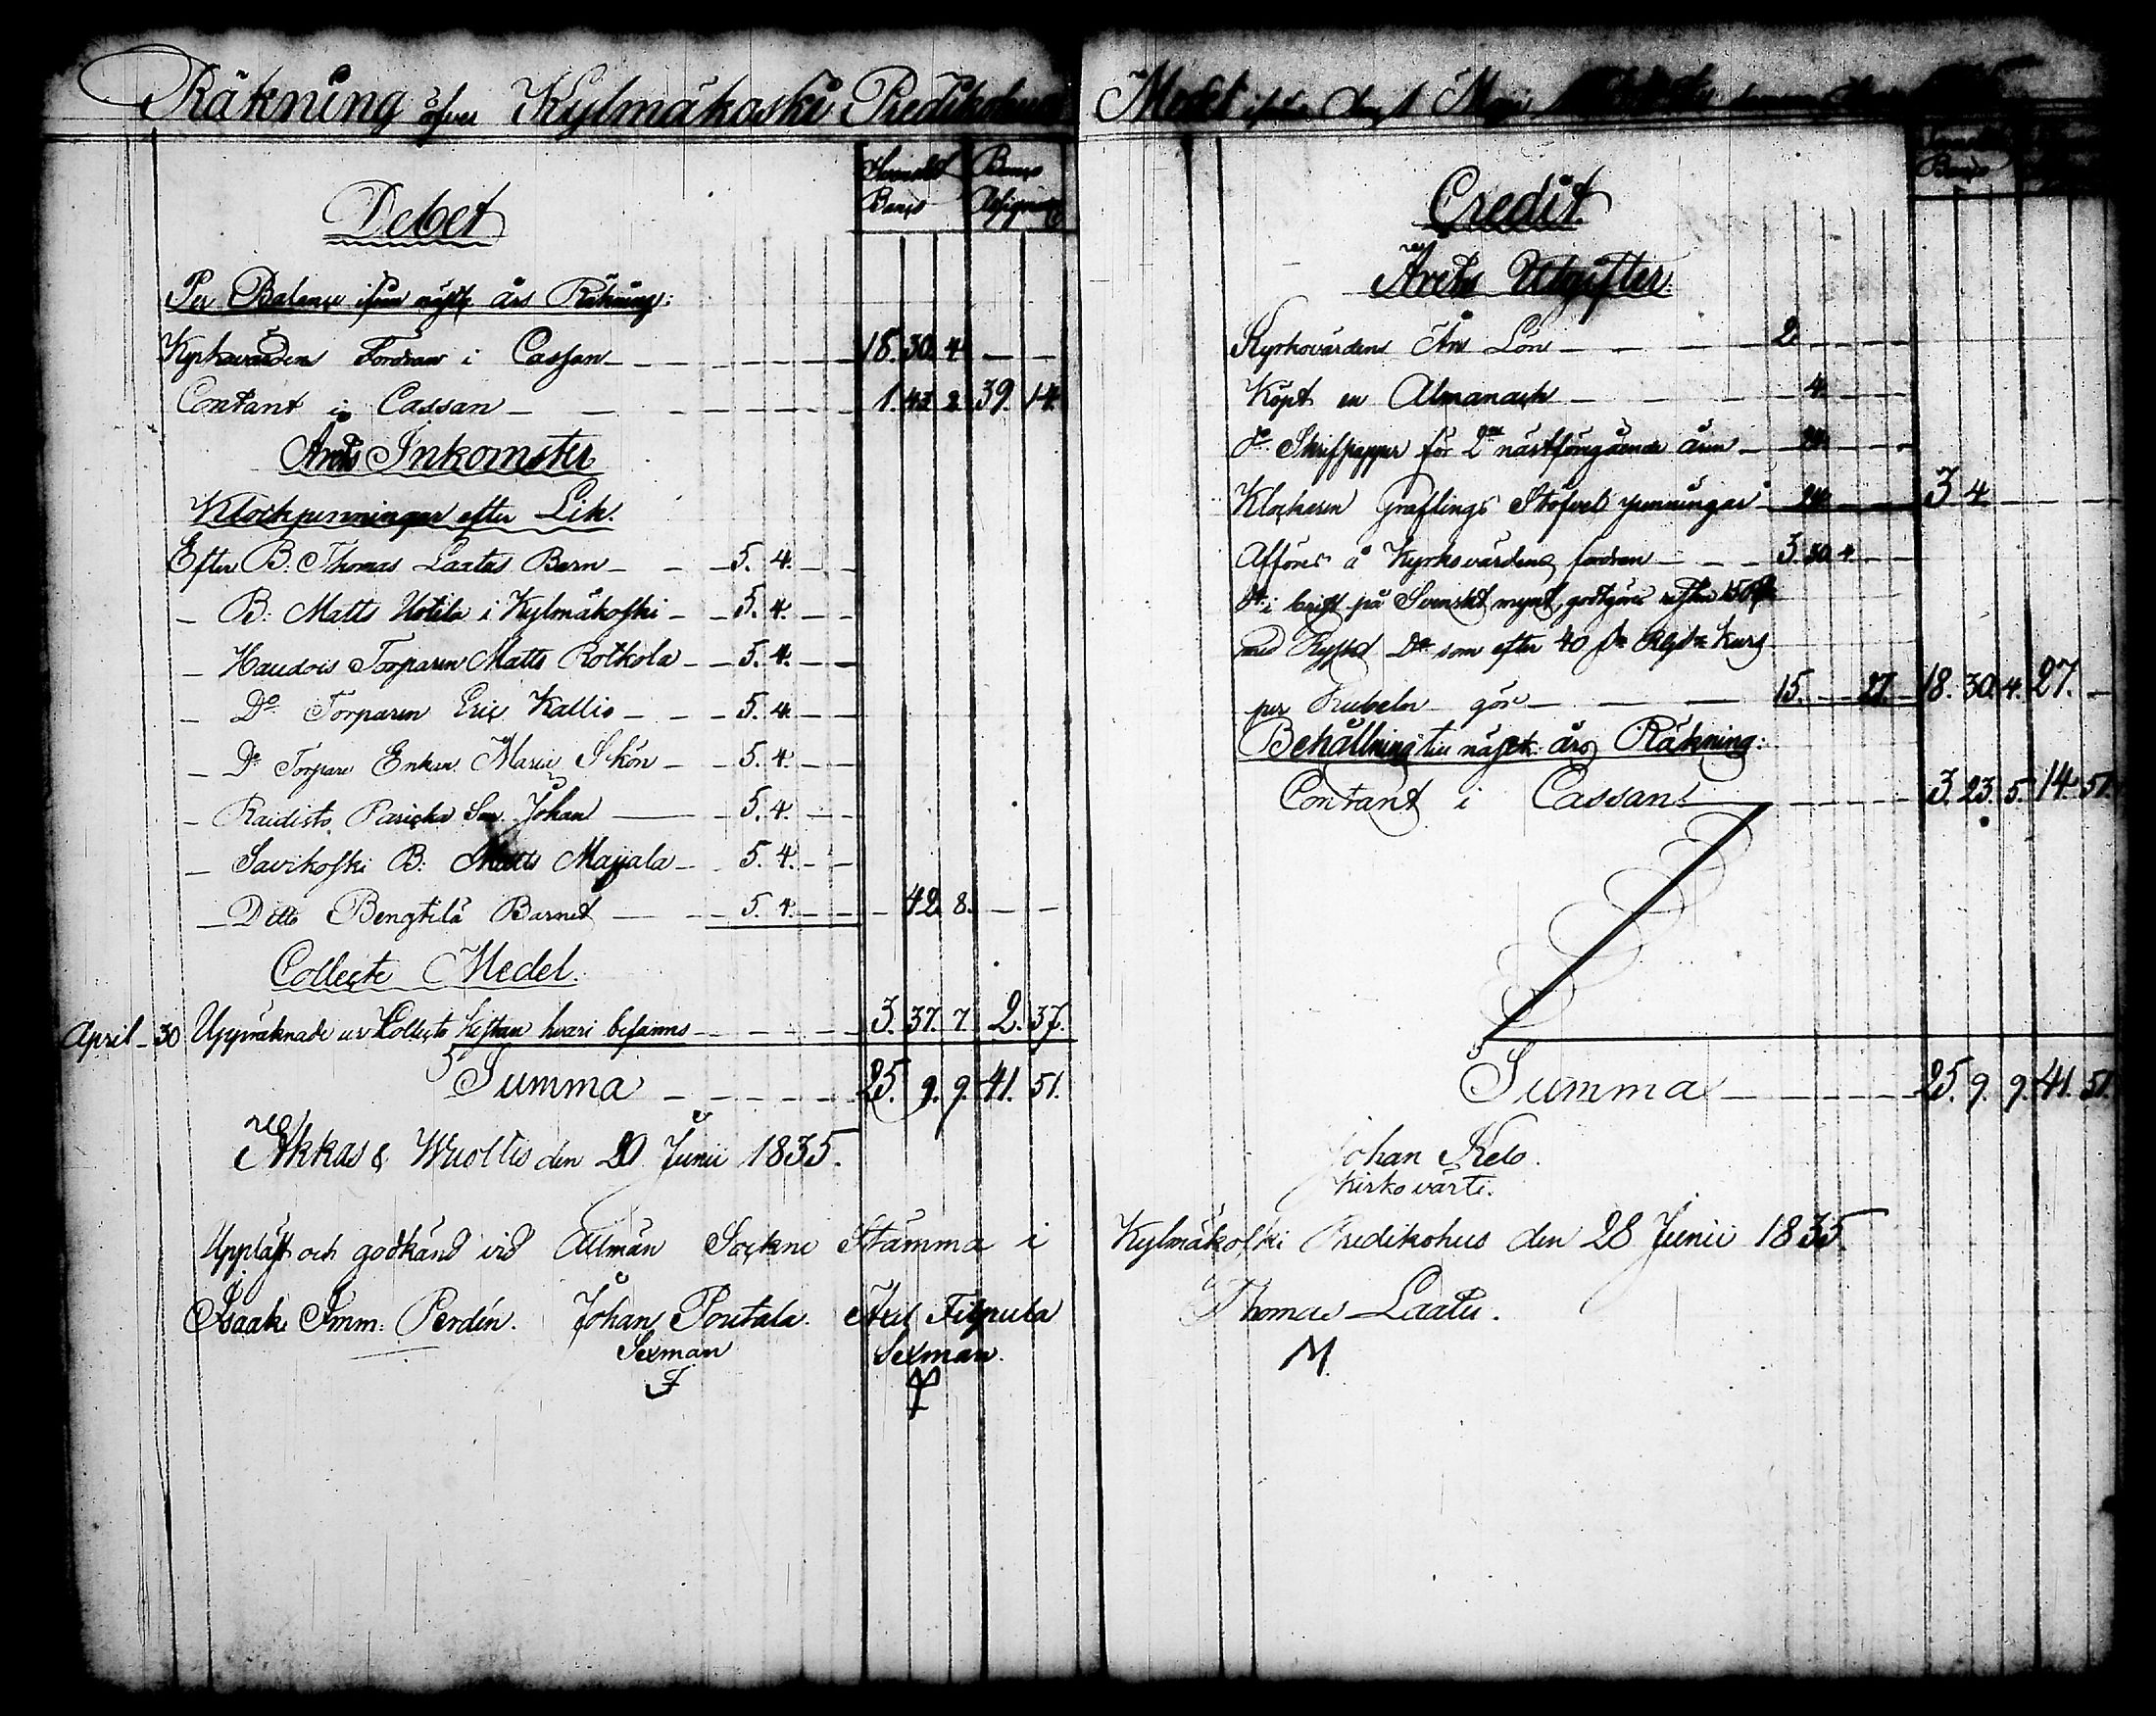 Räkning öfver Kylmäkoski Predikohus
Debet
Svenskt Banco
Banco Assignat
Per Balance ifrån näste års Räkning:
Kyrkovärdens Fordran i Cassan 18. 30. 4. — —
Contant i Cassan 1. 43. 2. 39. 14.
Årets Inkomster
Klockpenningar efter Lik.
Efter B: Thomas Laatus Barn — 5. 4.
— B: Matts Uotila i Kylmäkoski — 5. 4.
— Haudois Torparen Matts Rotkola — 5. 4.
— Do Torparen Eric Kallio — 5. 4.
— Do Torpare Enkan Maria Skön — 5. 4.
— Raidisto Pasicka Son Johan — 5. 4.
— Savikoski B: Matts Majala — 5. 4.
— Ditto Bengtilä Barnet — 5. 4. — 42. 8. — —
Collecte Medel.
April 30 Uppräknade ur Collects Kistan hvari befanns — 3. 37. 7. 2. 37.
Summa — 25. 9. 9. 41. 51.
Akkas & Wuoltis den 20 Junii 1835.
Uppläst och godkänd vid Allmän Sockne Stämma i
Isaak Imm: Perdén. Johan Poutala. Axel Filpula
Sexman Sexman.
Medel ifrån den 1 Maji
Banco
Credit
Årets Utgifter.
Kyrkovärdens Års Lön — 2.
Köpt en Almanach — 4.
do Skrifpapper för 2ne nästföregående åren — 24.
Klockaren Graflings Stöfvel penningar — 24. 3. 4.
Afföres å Kyrkovärdens fordran — 3. 30. 4.
do i brist på Svenskt mynt, godtgöres
med Rysskt Do som efter 40 Kurs
per Rubeln gör — 15. — 27. 18. 30. 4. 27. —
Behållning till näste års Räkning:
Contant i Cassan — 3. 23. 5. 14. 51.
Summa — 25. 9. 9. 41. 51.
Johan Kelo.
Kirko värti.
Kylmäkoski Predikohus den 28 Junii 1835.
Thomas Laatu.
M.